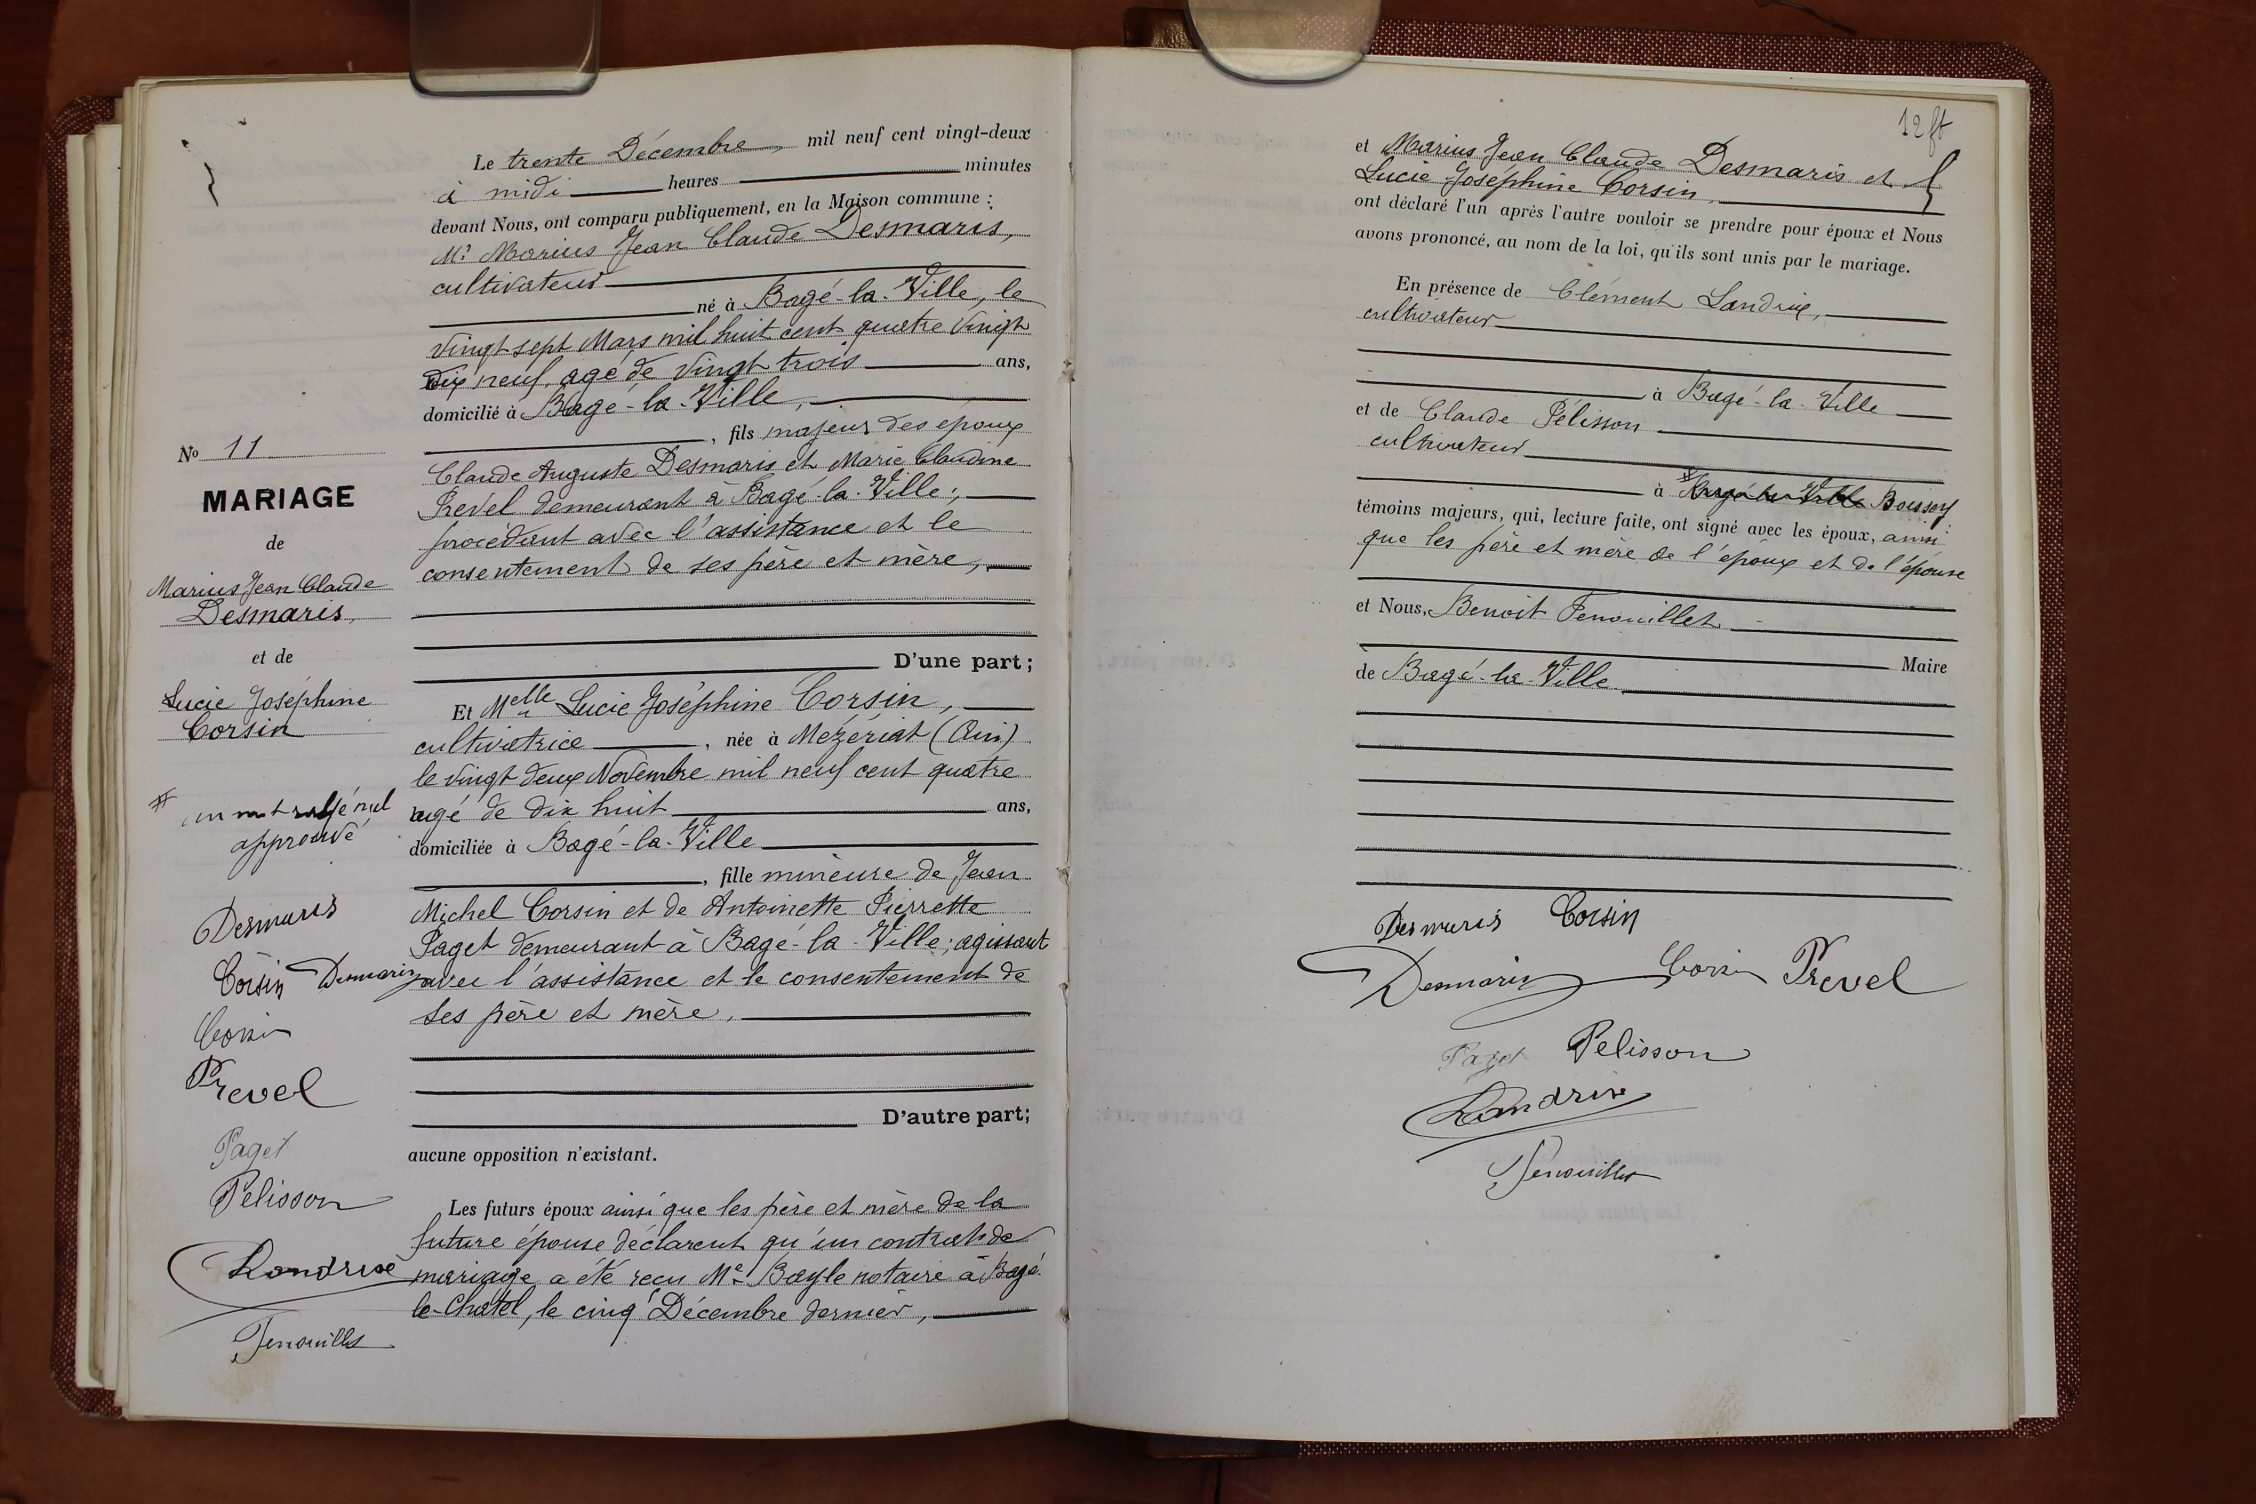 Le trente Décembre, mil neuf cent vingt-deux
à midi heures minutes
devant Nous, ont comparu publiquement, en la Maison commune :
Mr Marius Jean Claude Desmaris,
cultivateur
né à Bagé-la-Ville, le
vingt sept Mars mil huit cent quatre vingt
dix neuf, agé de vingt trois ans,
domicilié à Bagé-la-Ville,
, fils majeur des époux
Claude Auguste Desmaris et Marie Claudine
Prevel demeurant à Bagé-la-Ville;
procédant avec l'assistance et le
consentement de ses père et mère,
D'une part;
Et Melle Lucie Joséphine Corsin,
cultivatrice, née à Mézériat (Ain)
le vingt deux Novembre mil neuf cent quatre
agé de dix huit ans,
domiciliée à Bagé-la-Ville
, fille mineure de Jean
Michel Corsin et de Antoinette Pierrette
Paget demeurant à Bagé-la-Ville; agissant
avec l'assistance et le consentement de
ses père et mère,
D'autre part;
aucune opposition n'existant.
Les futurs époux ainsi que les père et mère de la
future épouse déclarent qu'un contrat de
mariage a été reçu Me Bayle notaire à Bagé-
le-Chatel, le cinq Décembre dernier,
No 11
MARIAGE
de
Marius Jean Claude
Desmaris,
et de
Lucie Joséphine
Corsin
un mot rayé nul
approuvé
Desmaris
Corsin Desmaris
Corsin
Prevel
Paget
Pelisson
Landrive
Fenouillet
12 ft
et Marius Jean Claude Desmaris et
Lucie Joséphine Corsin,
ont déclaré l'un après l'autre vouloir se prendre pour époux et Nous
avons prononcé, au nom de la loi, qu'ils sont unis par le mariage.
En présence de Clément Landrix,
cultivateur
à Bagé-la-Ville
et de Claude Pélisson
cultivateur
à Bagé-la-Ville Boissey
témoins majeurs, qui, lecture faite, ont signé avec les époux, ainsi
que les père et mère de l'époux et de l'épouse
et Nous, Benoit Fenouillet
Maire
de Bagé-la-Ville
Desmaris Corsin
Desmaris Corsin Prevel
Paget Pelisson
Landrive
Fenouillet